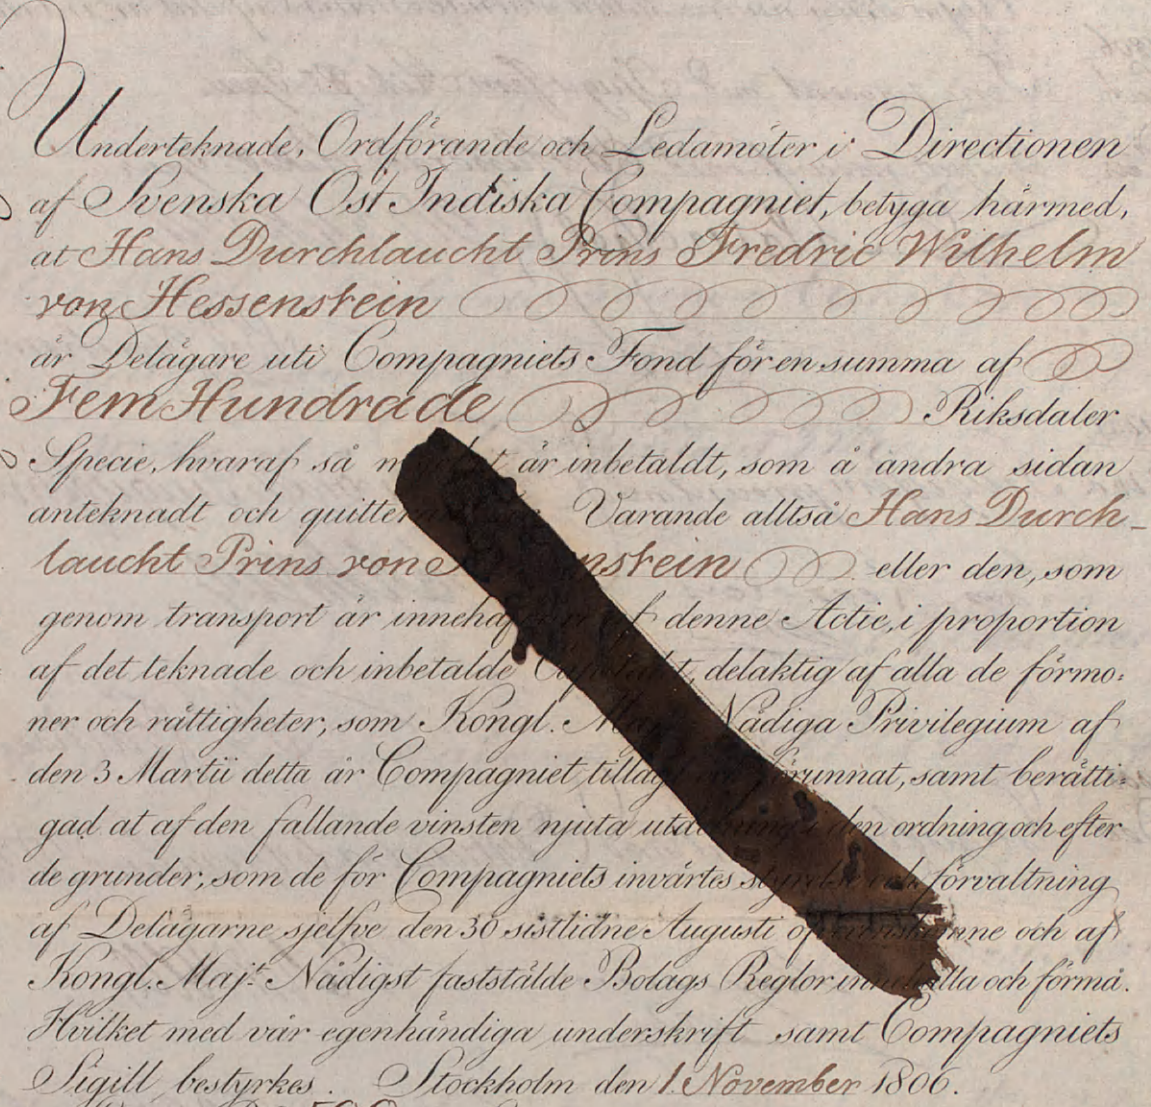 Underteknade, Ordförande och Ledamöter i Directionen
af Svenska Ost Indiska Compagniet, betyga härmed,
at Hans Durchlaucht Prins Fredric Wilhelm
von Hessenstein
är Delägare uti Compagniets Fond för en summa af
Fem Hundrade Riksdaler
Specie, hvaraf så är inbetaldt, som å andra sidan
anteknadt och Varande alltså Hans Durch-
laucht Prins von eller den, som
genom transport är af denne Actie, i proportion
af det teknade och inbetalde delaktig af alla de förmo:
ner och rättigheter, som Kongl. Nådiga Privilegium af
den 3 Martii detta år Compagniet, samt berätti:
gad at af den fallande vinsten njuta den ordning och efter
de grunder, som de för Compagniets invärtes styrelse och förvaltning
af Delägarne sjelfve den 30 sistlidne Augusti och af
Kongl. Majt. Nådigst faststälde Bolags Reglor, och förmå.
Hvilket med vår egenhändiga underskrift samt Compagniets
Sigill bestyrkes. Stockholm den 1. November 1806.